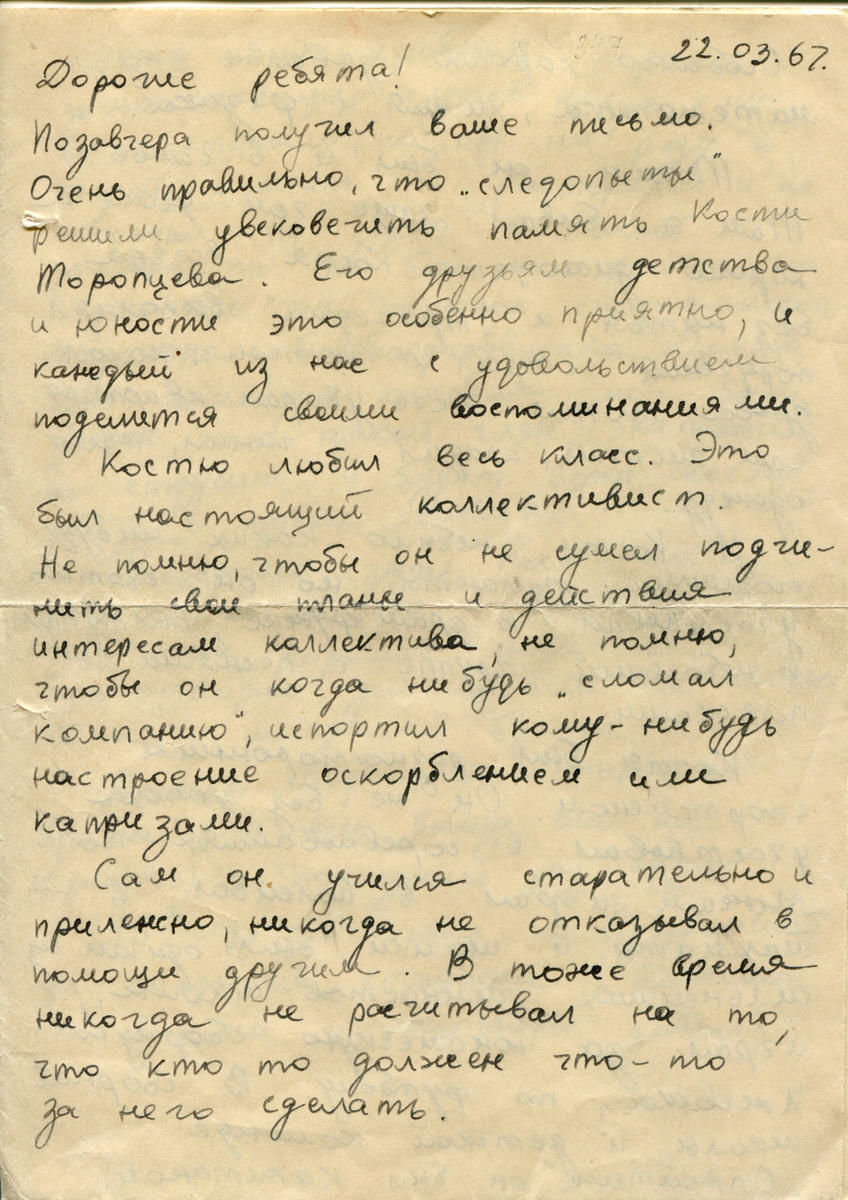 22.03.67.
Дорогие ребята!
Позавчера получил ваше письмо.
Очень правильно, что „следопыты"
решили увековечить память Кости
Торопцева. Его друзьям детства
и юности это особенно приятно, и
каждый из нас с удовольствием
поделится своими воспоминаниями.
Костю любил весь класс. Это
был настоящий коллективист.
Не помню, чтобы он не сумел подчи-
нить свои планы и действия
интересам коллектива, не помню,
чтобы он когда нибудь „сломал
компанию", испортил кому-нибудь
настроение оскорблением или
капризами.
Сам он учился старательно и
прилежно, никогда не отказывал в
помощи другим. В тоже время
никогда не расчитывал на то,
что кто то должен что-то
за него сделать.